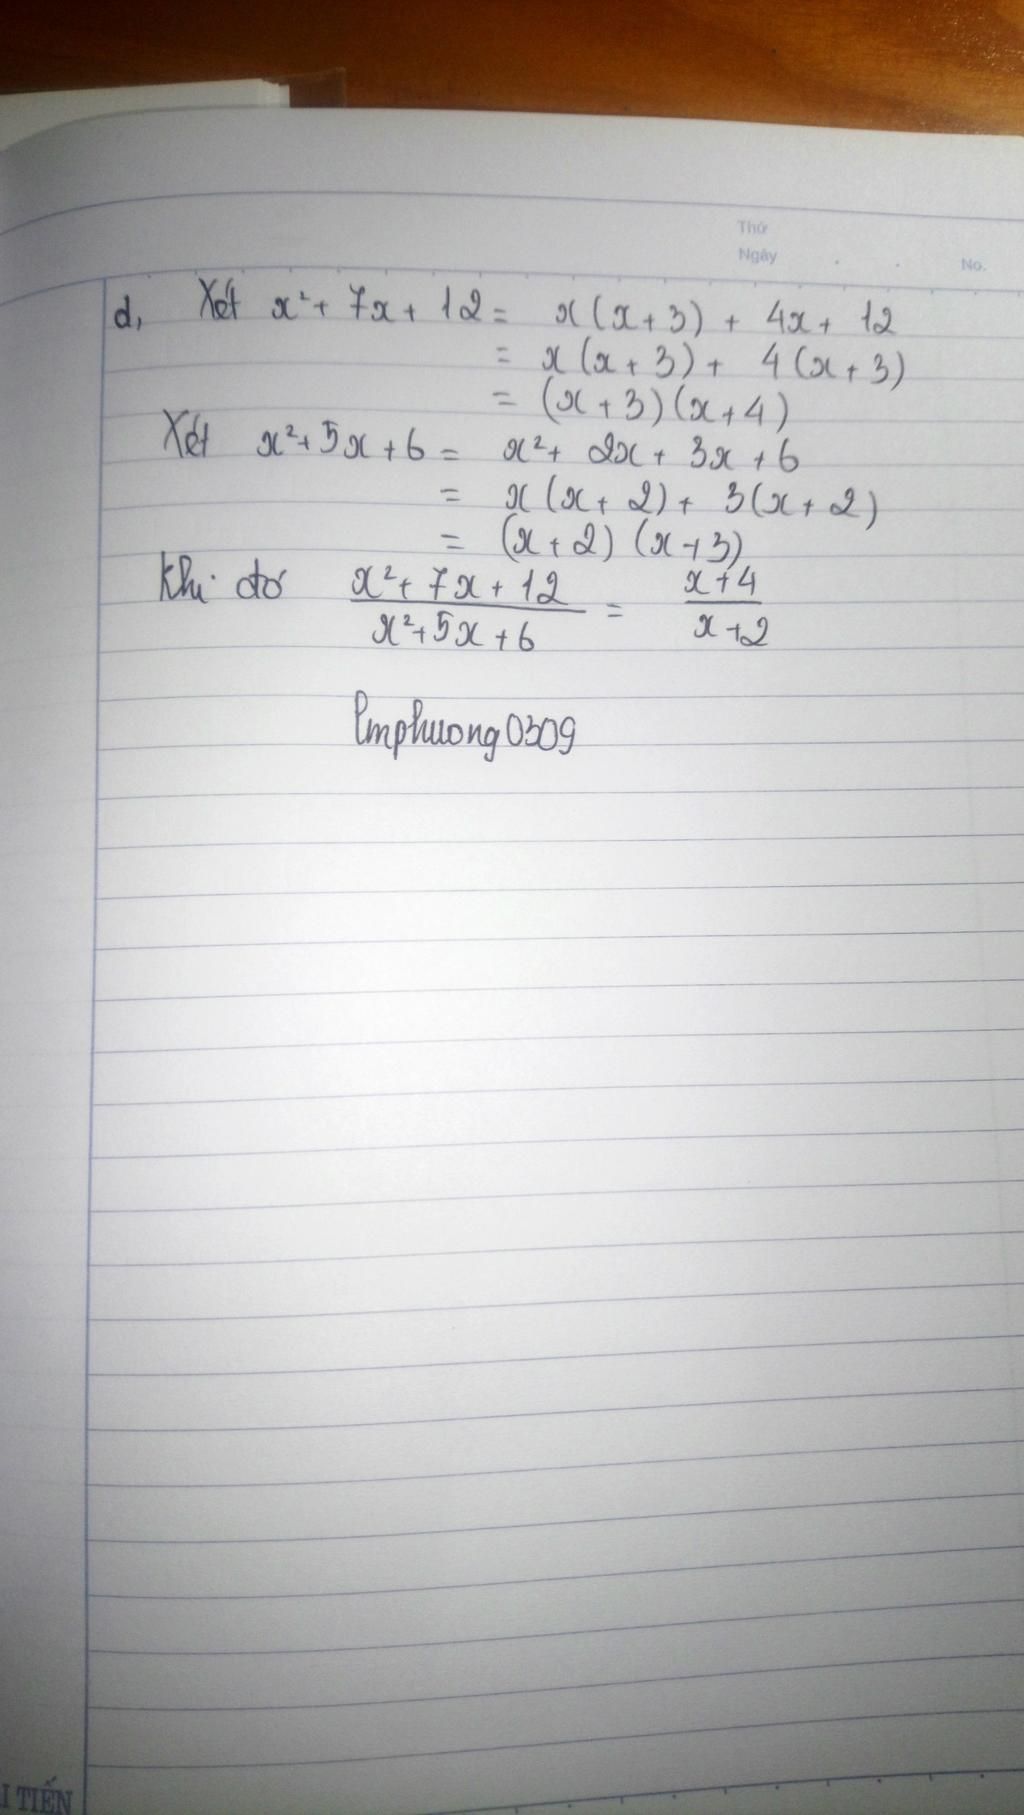 Thứ
Ngày . . No.
d, Xét x² + 7x + 12 = x(x+3) + 4x + 12
= x(x+3) + 4(x+3)
= (x+3)(x+4)
Xét x²+5x+6 = x²+ 2x + 3x + 6
= x(x+2) + 3(x+2)
= (x+2)(x+3)
Khi đó \frac{x²+7x+12}{x²+5x+6} = \frac{x+4}{x+2}
lmphuong0309
I TIẾN